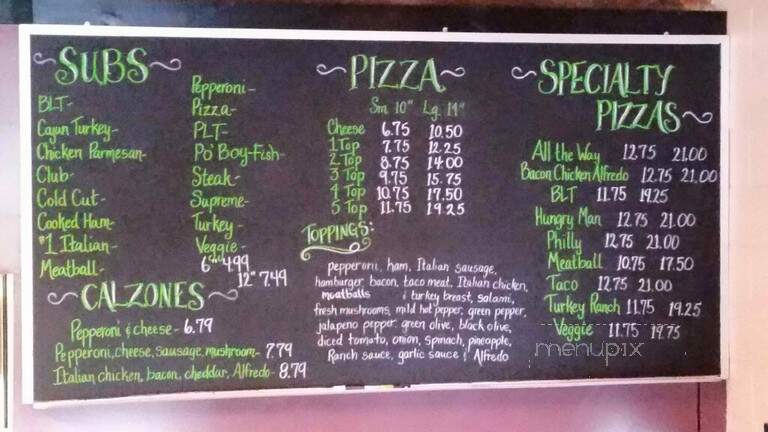 SUBS
BLT-
Cajun Turkey-
Chicken Parmesan-
Club-
Cold Cut-
Cooked Ham-
#1 Italian-
Meatball-
Pepperoni-
Pizza-
PLT-
Po' Boy-Fish-
Steak-
Supreme-
Turkey-
Veggie-
6" 4.99
12" 7.49
CALZONES
Pepperoni & cheese - 6.79
Pepperoni, cheese, sausage, mushroom- 7.79
Italian chicken, bacon, cheddar, Alfredo- 8.79
PIZZA
Sm. 10" Lg. 14"
Cheese 6.75 10.50
1 Top 7.75 12.25
2 Top 8.75 14.00
3 Top 9.75 15.75
4 Top 10.75 17.50
5 Top 11.75 19.25
TOPPINGS:
pepperoni, ham, Italian sausage,
hamburger, bacon, taco meat, Italian chicken,
meatballs & turkey breast, salami,
fresh mushrooms, mild hot pepper, green pepper,
jalapeno pepper, green olive, black olive,
diced tomato, onion, spinach, pineapple,
Ranch sauce, garlic sauce & Alfredo
SPECIALTY
PIZZAS
All the Way 12.75 21.00
Bacon Chicken Alfredo 12.75 21.00
BLT 11.75 19.25
Hungry Man 12.75 21.00
Philly 12.75 21.00
Meatball 10.75 17.50
Taco 12.75 21.00
Turkey Ranch 11.75 19.25
Veggie 11.75 17.75
menupix